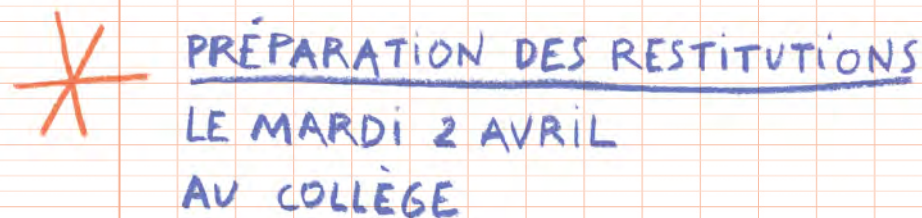 PRÉPARATION DES RESTITUTIONS
LE MARDI 2 AVRIL
AU COLLÈGE